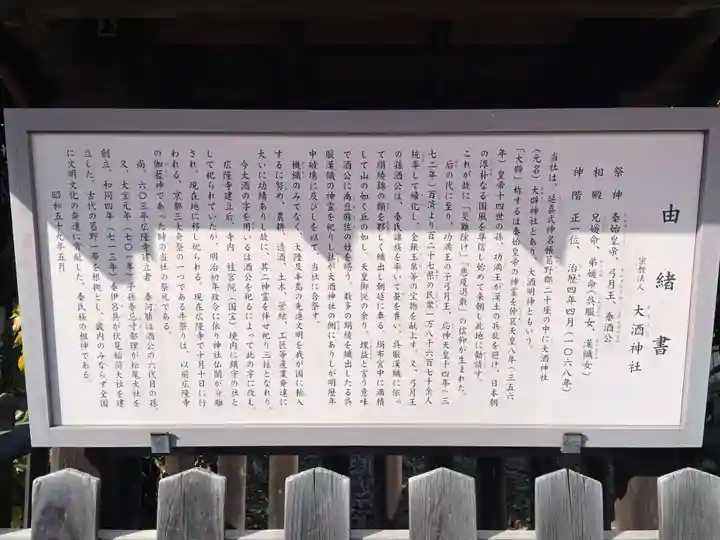 由緒書
宗教法人 大酒神社
祭神 秦始皇帝、弓月王、秦酒公
相殿 兄媛命、弟媛命(呉服女、漢織女)
神階 正一位、治暦四年四月(一〇六八年)
当社は、延喜式神名帳葛野郡二十座の中に大酒神社
(元名)大辟神社とあり、大酒明神ともいう。
「大辟」称するは秦始皇帝の神霊を仲哀天皇八年(三五六
年)皇帝十四世の孫、功満王が漢土の兵乱を避け、日本朝
の淳朴なる国風を尊信し始めて来朝し此地に勧請す。
これが故に「災難除け」「悪疫退散」の信仰が生まれた。
后の代に至り、功満王の子弓月王、応神天皇十四年(三
七二年)百済より百二十七県の民衆一万八千六百七十余人
統率して帰化し、金銀玉帛等の宝物を献上す。又、弓月王
の孫酒公は、秦氏諸族を率いて蚕を養い、呉服漢織に依っ
て絹綾錦の類を夥しく織出し朝廷に奉る。絹布宮中に満積
して山の如く丘の如し、天皇御悦の余り、埋益と言う意味
で酒公に禹豆麻佐の姓を賜う。数多の絹綾を織出したる呉
服漢織の神霊を祀りし社が大酒神社の側にありしが明暦年
中破壊に及びしを以て、当社に合祭す。
機織のみでなく、大陸及半島の先進文明を我が国に輸入
するに努め、農耕、造酒、土木、管絃、工匠等産業発達に
大いに功績ありし故に、其二神霊を伴せ祀り三柱となれり。
今大酒の字を用いるは酒公を祀るによって此の字に改む。
広隆寺建立后、寺内、桂宮院(国宝)境内に鎮守の社と
して祀られていたが、明治初年政令に依り神社仏閣が分離
され、現在地に移し祀られる。現在広隆寺で十月十日に行
われる、京都三大奇祭の一つである牛祭りは、以前広隆寺
の伽藍神であった時の当社の祭礼である。
尚、六〇三年広隆寺建立者 秦河勝は酒公の六代目の孫。
又、大宝元年(七〇一年)子孫秦忌寸都理が松尾大社を
創立、和同四年(七一三年)秦伊呂具が伏見稲荷大社を建
立した。古代の葛野一帯を根拠とし、畿内のみならず全国
に文明文化の発達に貢献した。秦氏族の祖神である。
昭和五十九年五月